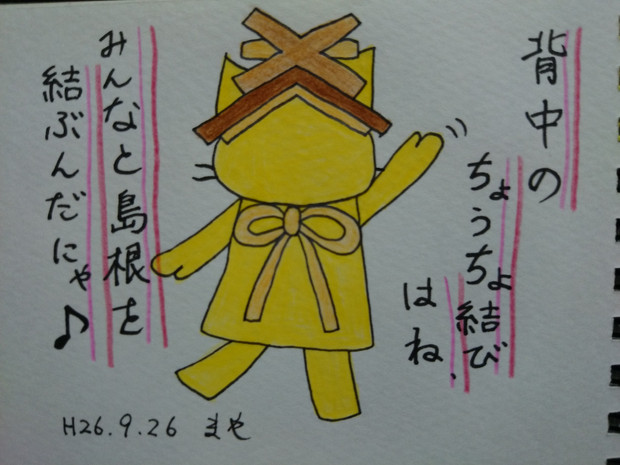 背中の
ちょうちょ結び
はね、
みんなと島根を
結ぶんだにゃ♪
H26.9.26 まや